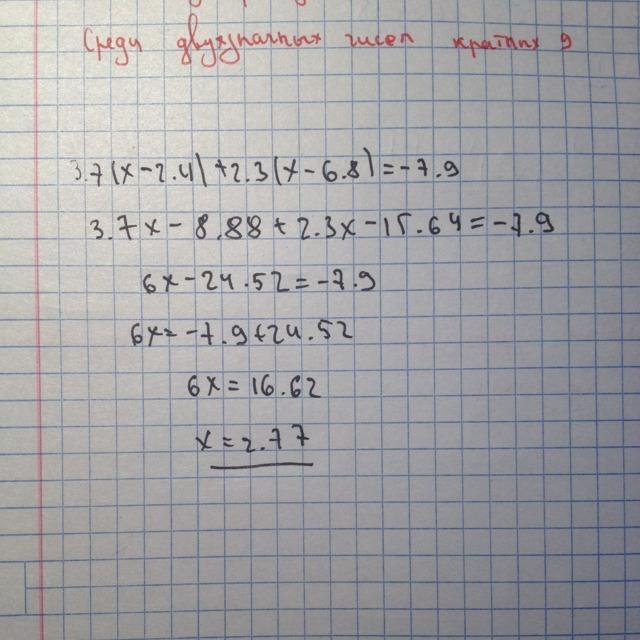 Среди двухзначных чисел кратных 9
3.7(x-2.4)+2.3(x-6.8)=-7.9
3.7x-8.88+2.3x-15.64=-7.9
6x-24.52=-7.9
6x=-7.9+24.52
6x=16.62
x=2.77